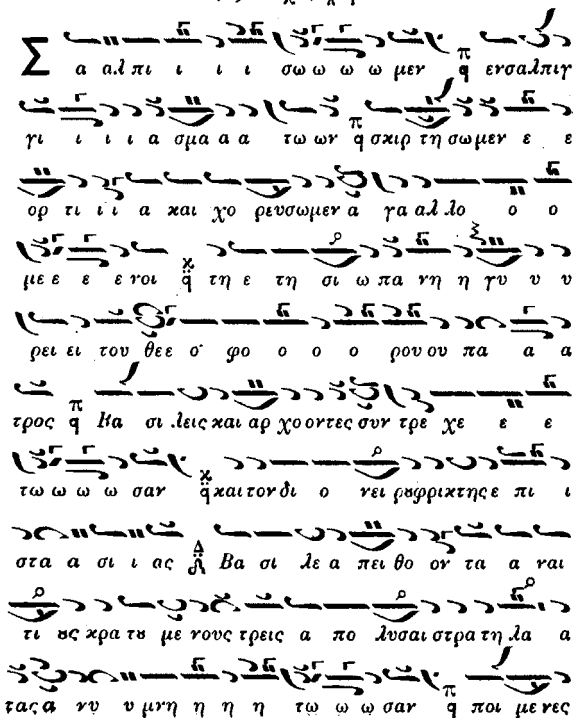 Σ α αλ πι ι ι ι σω ω ω ω μεν π q ενσαλπιγ
γι ι ι ι α σμα α α τω ων π q σκιρ τη σω μεν ε ε
ορ τι ι ι α και χο ρευσωμεν α γα αλ λο ο ο
με ε ε ε νοι κ q τη ε τη σι ω πα νη η γυ υ υ
ρει ει του θεε ο φο ο ο ο ρου ου πα α α
τρος π q Βα σι λεις και αρ χο οντες συν τρε χε ε ε
τω ω ω ω σαν κ q και τον δι ο νει ρȣ φρικτης ε πι ι
στα α σι ι ας Δ Βα σι λε α πει θο ον τα α ναι
τι ȣς κρα τȣ με νους τρεις α πο λυσαι στρα τη λα α
τας α νυ υ μνη η η η τω ω ω σαν π q ποι με νες